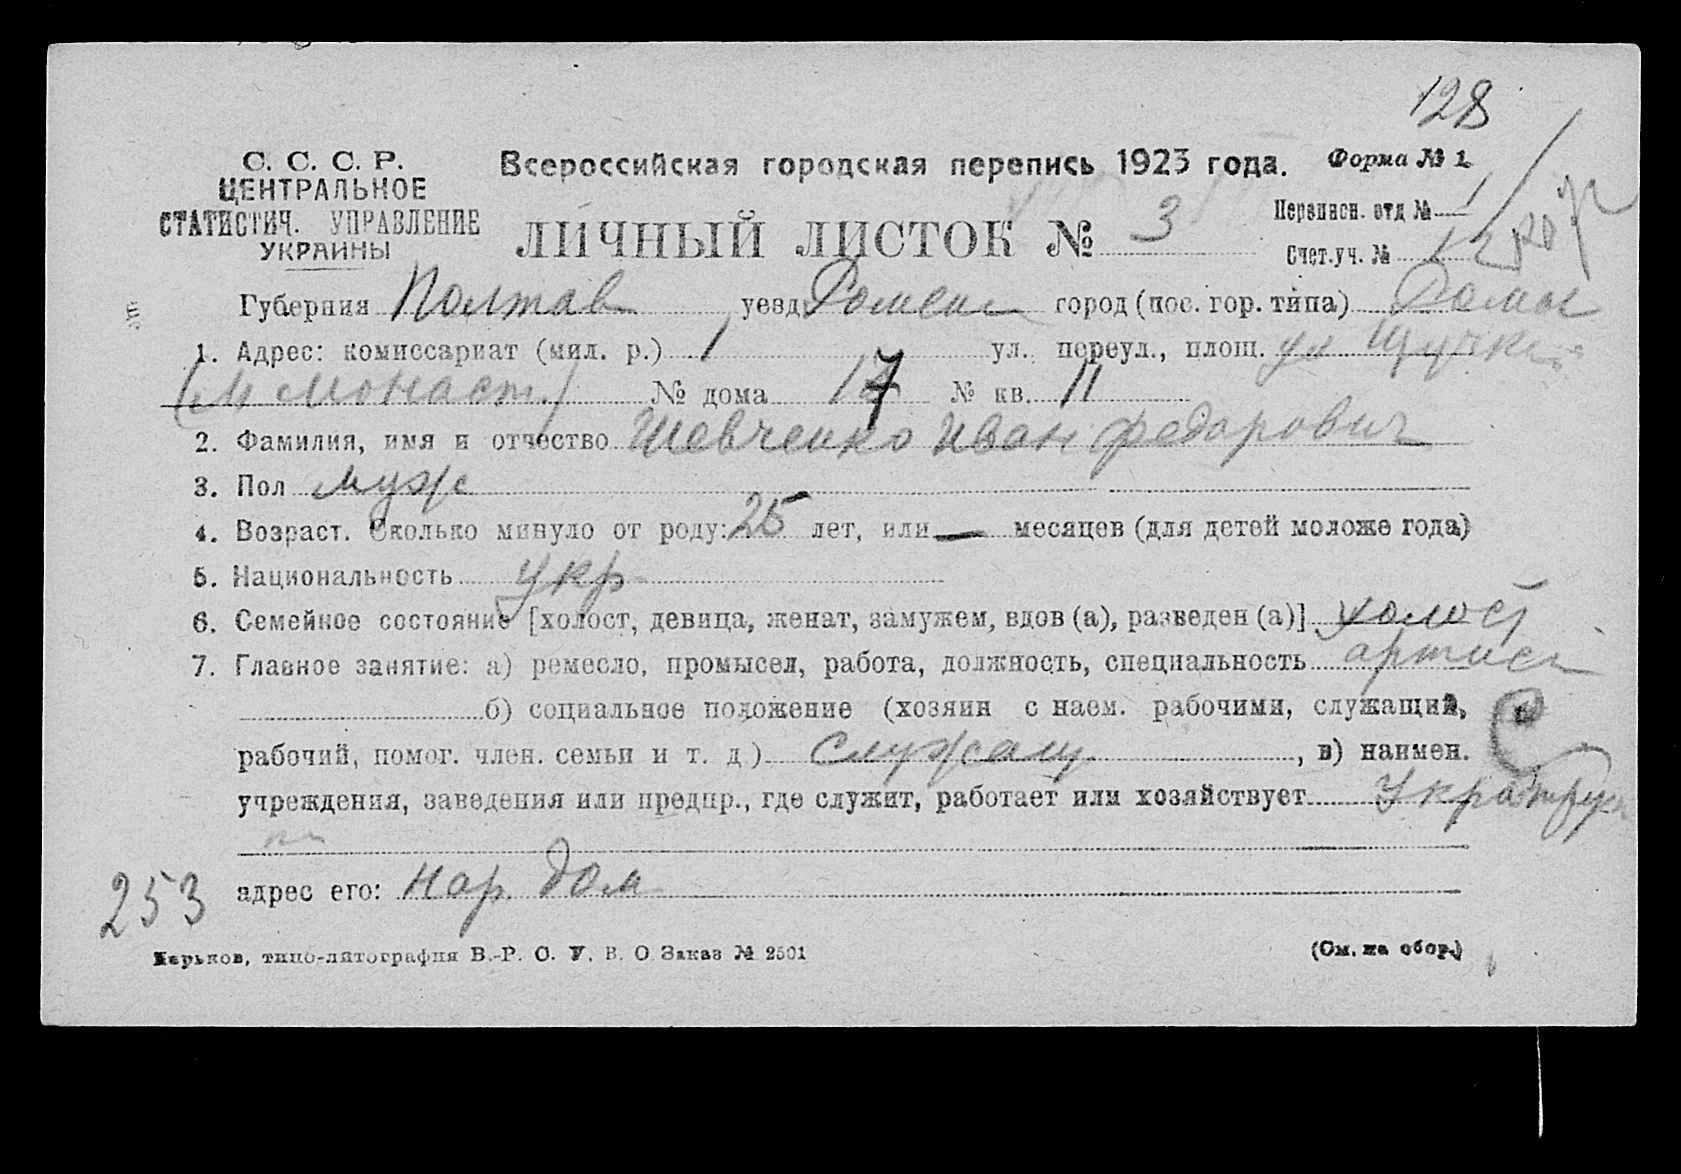 128
С. С. С. Р.
ЦЕНТРАЛЬНОЕ
СТАТИСТИЧ. УПРАВЛЕНИЕ
УКРАИНЫ
Всероссийская городская перепись 1923 года.
Форма № 1
ЛИЧНЫЙ ЛИСТОК № 3
Переписн. отд № 1
Счет.уч. № 12
Губерния Полтав уезд Ромен город (пос. гор. типа) Ромны
1. Адрес: комиссариат (мил. р.) 1 ул. переул., площ. ул
(М Монаст) № дома 17 № кв. 11
2. Фамилия, имя и отчество Шевченко Иван Федорович
3. Пол муж
4. Возраст. Сколько минуло от роду: 25 лет, или — месяцев (для детей моложе года)
5. Национальность укр
6. Семейное состояние [холост, девица, женат, замужем, вдов (а), разведен (а)] холост
7. Главное занятие: а) ремесло, промысел, работа, должность, специальность артист
б) социальное положение (хозяин с наем. рабочими, служащий,
рабочий, помог. член. семьи и т. д) служащ, в) наимен.
учреждения, заведения или предпр., где служит, работает или хозяйствует
адрес его: Нар. дом
253
Харьков, типо-литография В.-Р. С. У. В. О Заказ № 2501
(См. на обор.)